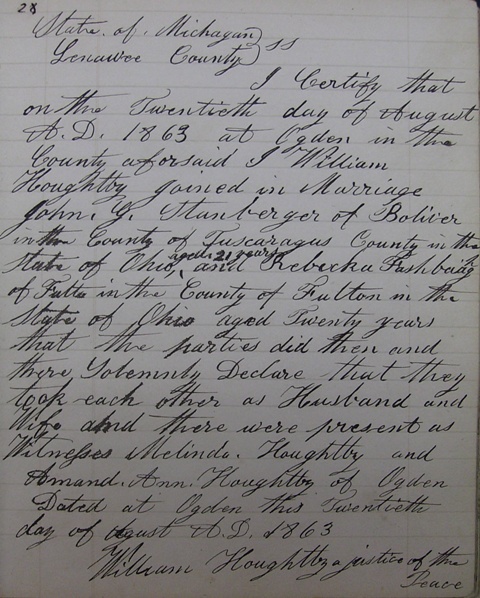 28
State. of. Michagan) ss
Lenawee County)
I Certify that
on the Twentieth day of August
A.D. 1863 at Ogden in the
County aforsaid I William
Houghtby joined in Marriage
John. Y. Stanberger of Boliver
in the County of Tuscaragus County in the
aged 21 years
State of Ohio, and Rebecka
of Fulton in the County of Fulton in the
State of Ohio aged Twenty years
that the parties did then and
there Solemnly Declare that they
took each other as Husband and
Wife and there were present as
Witnesses Melinda. Houghtby and
Amand. Ann. Houghtby of Ogden
Dated at Ogden this Twentieth
day of August A.D. 1863
William Houghtby a justice of the
Peace